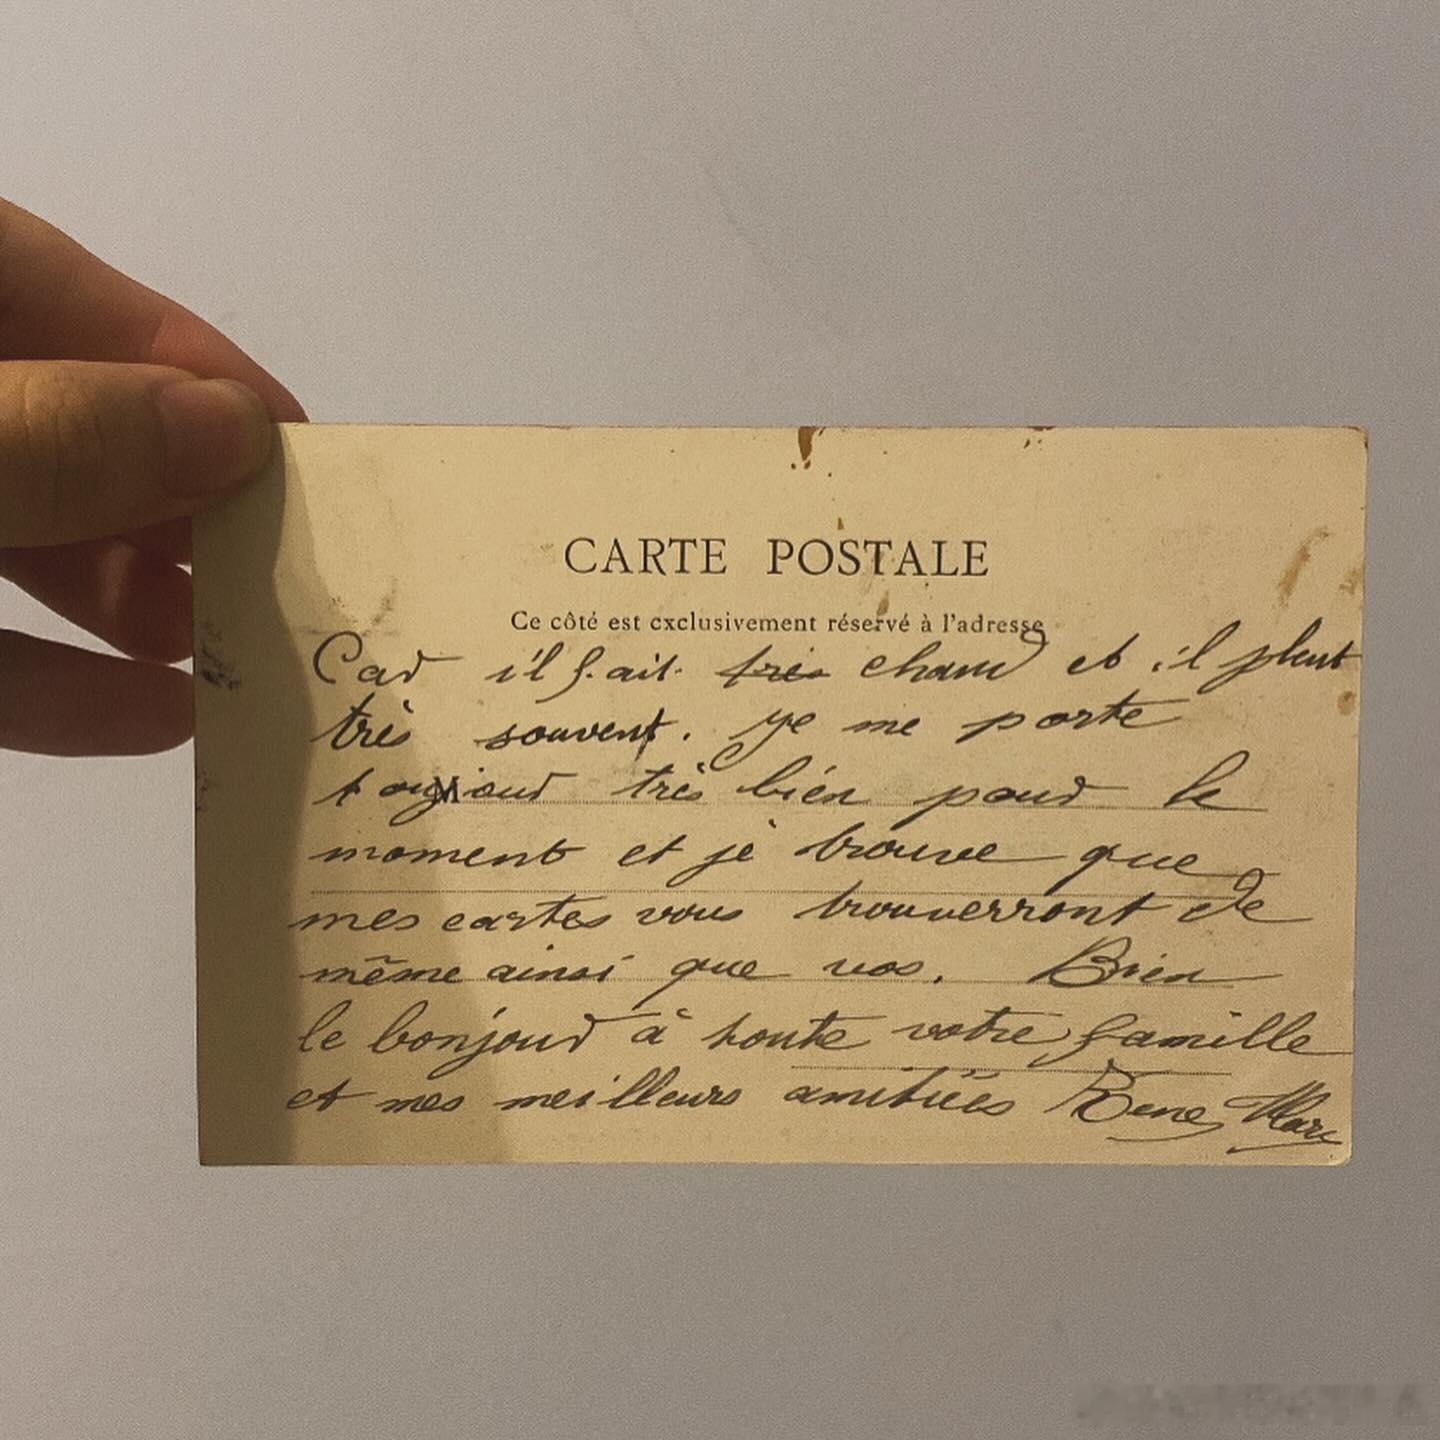 CARTE POSTALE
Ce côté est exclusivement réservé à l'adresse
Car il fait très chaud et il pleut
très souvent. Je me porte
toujour très bien pour le
moment et je trouve que
mes cartes vous trouverront de
même ainsi que vos. Bien
le bonjour à toute votre famille
et mes meilleurs amitiés Rene Marc